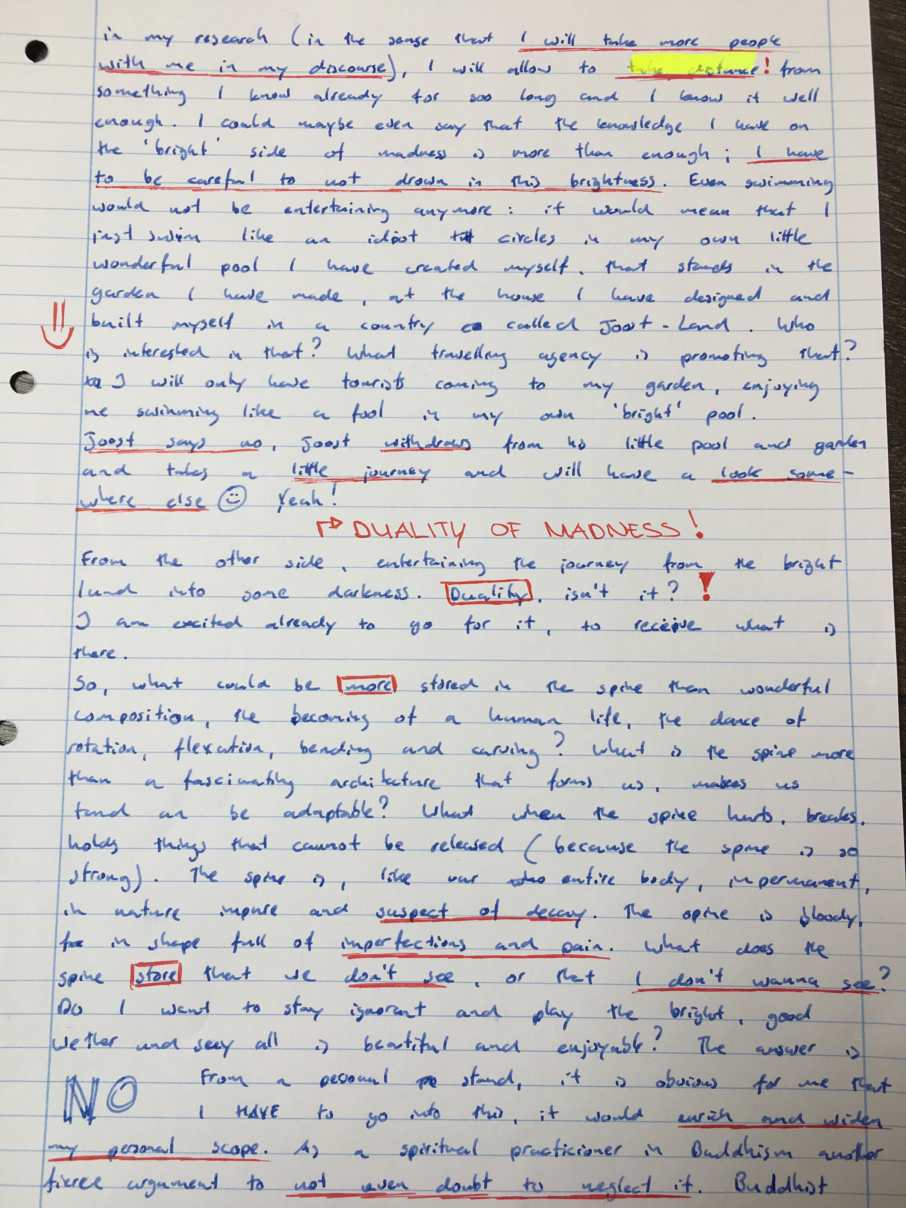 in my research (in the sense that I will take more people
with me in my discourse), I will allow to take distance! from
something I know already for soo long and I know it well
enough. I could maybe even say that the knowledge I have on
the 'bright' side of madness is more than enough; I have
to be careful to not drown in this brightness. Even swimming
would not be entertaining anymore: it would mean that I
just swim like an idiot circles in my own little
wonderful pool I have created myself, that stands in the
garden I have made, at the house I have designed and
built myself in a country called Joost-Land. Who
is interested in that? What travelling agency is promoting that?
I will only have tourists coming to my garden, enjoying
me swimming like a fool in my own 'bright' pool.
Joost says no, Joost withdraws from his little pool and garden
and takes a little journey and will have a look some-
where else ☺ Yeah!
DUALITY OF MADNESS!
From the other side, entertaining the journey from the bright
land into some darkness. Duality, isn't it? !
I am excited already to go for it, to receive what is
there.
So, what could be more stored in the spine than wonderful
composition, the becoming of a human life, the dance of
rotation, flexution, bending and carving? What is the spine more
than a fascinating architecture that forms us, makes us
tand an be adaptable? What when the spine hurts, breaks,
holds things that cannot be released (because the spine is so
strong). The spine is, like our entire body, impermanent,
in nature impure and suspect of decay. The spine is bloody,
in shape full of imperfections and pain. What does the
spine store that we don't see, or that I don't wanna see?
Do I want to stay ignorant and play the bright, good
wether and say all is beautiful and enjoyable? The answer is
NO From a personal stand, it is obvious for me that
I HAVE to go into this, it would enrich and widen
my personal scope. As a spiritual practicioner in Buddhism another
fierce argument to not even doubt to neglect it. Buddhist